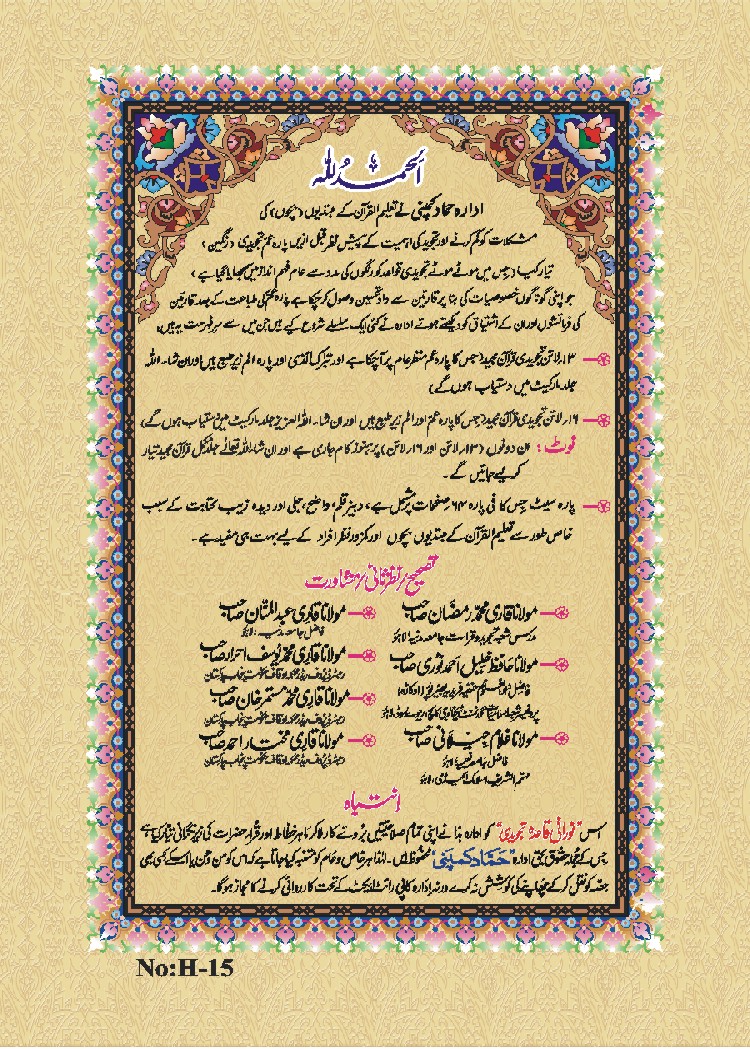 الحمد للہ
ادارہ حماد کمپنی نے تعلیم القرآن کے مبتدیوں (بچوں) کی
مشکلات کو کم کرنے اور تجوید کی اہمیت کے پیشِ نظر قبل ازیں پارہ عم تجویدی (رنگین)
تیار کیا (جس میں موٹے موٹے تجویدی قواعد کو رنگوں کی مدد سے عام فہم انداز میں سمجھایا گیا ہے)
جو اپنی گوناگوں خصوصیات کی بنا پر قارئین سے داد تحسین وصول کر چکا ہے پارہ عم کی طباعت کے بعد قارئین
کی فرمائشوں اور ان کے اشتیاق کو دیکھتے ہوئے ادارہ نے کئی ایک سلسلے شروع کیے ہیں جن میں سے سرفہرست یہ ہیں
۱۳ لائن تجویدی قرآن مجید (جس کا پارہ عم منظر عام پر آ چکا ہے اور تبارک الذی اور پارہ الم زیر طبع ہیں اور ان شاء اللہ
جلد مارکیٹ میں دستیاب ہوں گے)
۱۶ لائن تجویدی قرآن مجید (جس کا پارہ عم اور الم زیر طبع ہیں اور ان شاء اللہ العزیز جلد مارکیٹ میں دستیاب ہوں گے)
نوٹ: ان دونوں (۱۳ لائن اور ۱۶ لائن) پر ہنوز کام جاری ہے اور ان شاء اللہ تعالیٰ جلد مکمل قرآن مجید تیار
کر لیے جائیں گے۔
پارہ سیٹ جس کا فی پارہ ۶۴ صفحات پر مشتمل ہے، دبیز قلم، واضح، جلی اور دیدہ زیب کتابت کے سبب
خاص طور سے تعلیم القرآن کے مبتدیوں بچوں اور کمزور نظر افراد کے لیے بہت ہی مفید ہے۔
تصحیح/نظر ثانی/مشاورت
مولانا قاری محمد رمضان صاحب
مدرس شعبہ تجوید و قرات جامعہ مدنیہ لاہور
مولانا حافظ خلیل احمد نوری صاحب
مولانا غلام جیلانی صاحب
مولانا قاری عبد المنان صاحب
مولانا قاری محمد یوسف احرار صاحب
رجسٹرڈ پروف ریڈر محکمہ اوقاف حکومت پنجاب پاکستان
مولانا قاری محمد مستمر خان صاحب
رجسٹرڈ پروف ریڈر محکمہ اوقاف حکومت پنجاب پاکستان
مولانا قاری مختار احمد صاحب
رجسٹرڈ پروف ریڈر محکمہ اوقاف حکومت پنجاب پاکستان
انتباہ
اس "نورانی قاعدہ تجویدی" کو ادارہ ہذا نے اپنی تمام صلاحیتیں بروئے کار لا کر ماہر خطاط اور قراء حضرات کی زیر نگرانی تیار کیا ہے
جس کے جملہ حقوق بحق ادارہ "حماد کمپنی" محفوظ ہیں۔ لہٰذا ہر خاص و عام کو متنبہ کیا جاتا ہے کہ اس کو من و عن یا اس کے کسی بھی
حصہ کو نقل کر کے چھاپنے کی کوشش نہ کرے ورنہ ادارہ کاپی رائٹ ایکٹ کے تحت کارروائی کرنے کا مجاز ہوگا۔
No:H-15